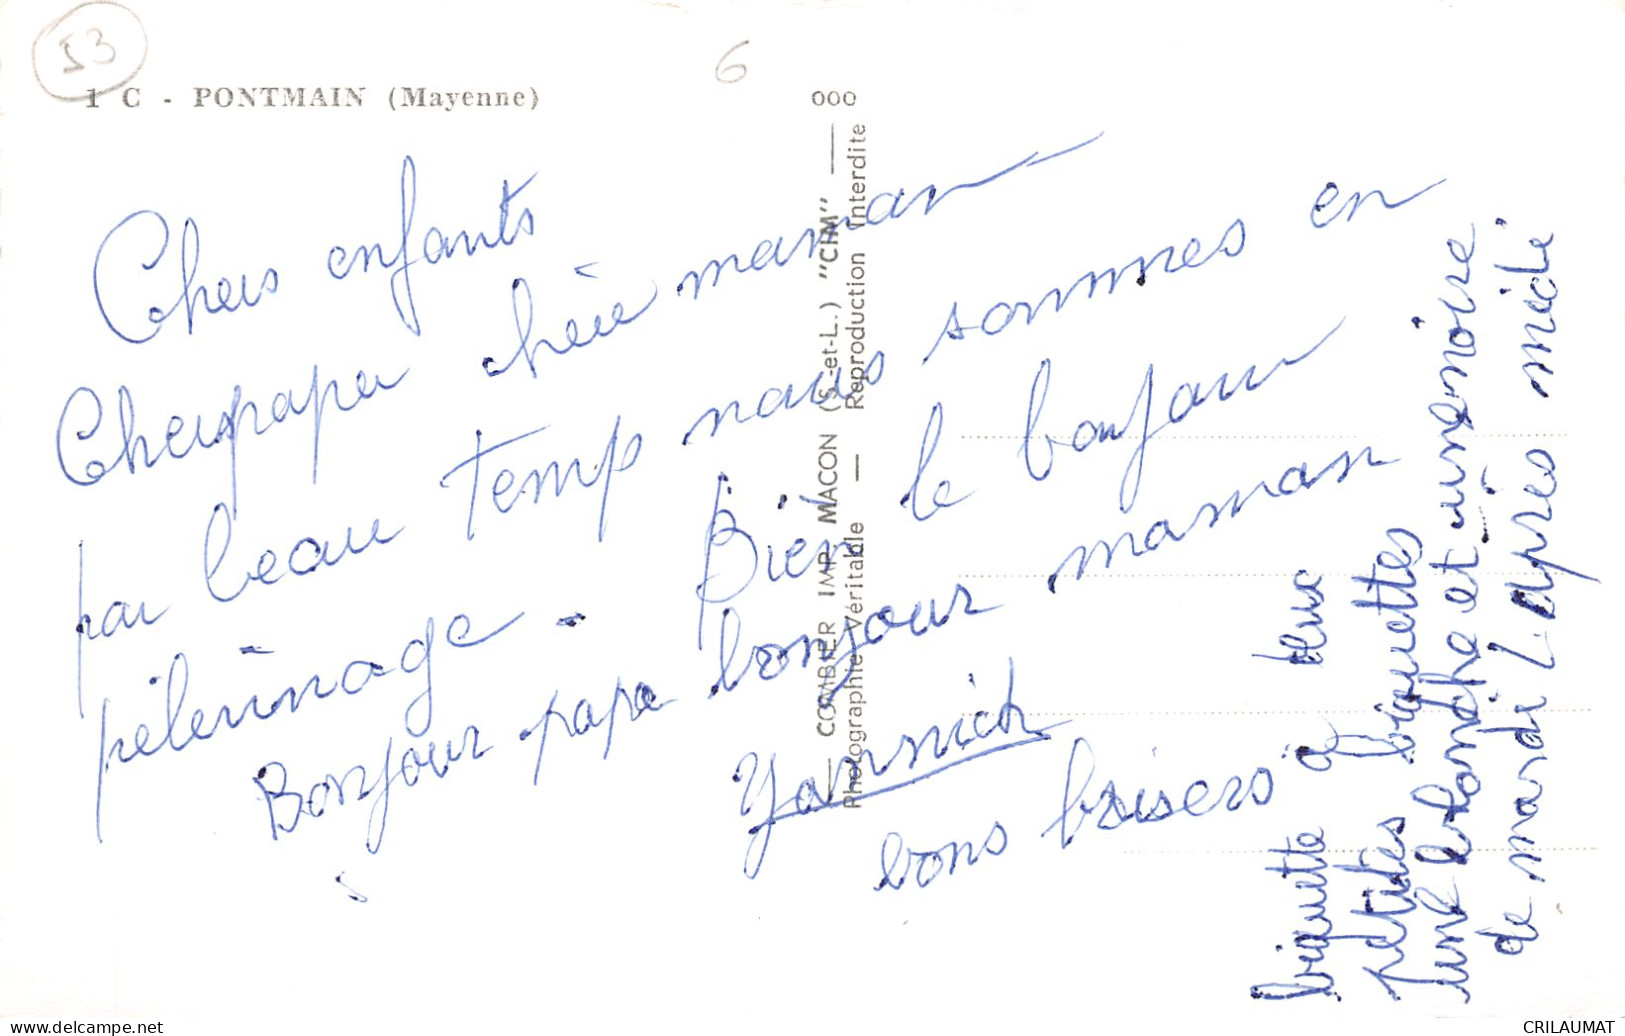 53
6
1 C - PONTMAIN (Mayenne)
000
Chers enfants
Cher papa chère maman
par beau temp nous sommes en
pélerinage - Bien le bonjour
Bonjour papa bonjour maman
Yannick
bons baisers a
biquette deux
petites biquettes
une blonche et une noire
de mardi l'après midi
COMBIER IMP. MACON (S.-et-L.) "CIM"
Photographie Véritable — Reproduction Interdite
CRILAUMAT